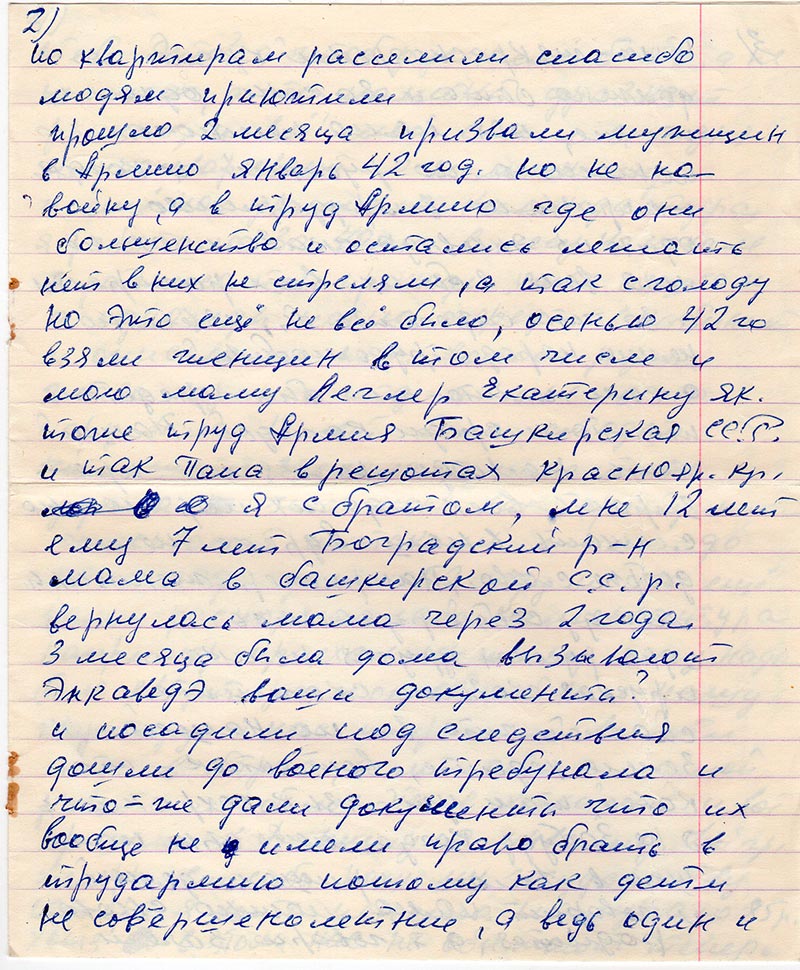 2)
по квартирам расселили спасибо
людям приютили
прошло 2 месяца призвали мужщин
в Армию январь 42 год. но не на-
войну, а в труд Армию где они
большенство и остались лежать
нет в них не стреляли, а так с голоду
но это ещё не всё было, осенью 42 го
взяли женщин в том числе и
мою маму Леглер Екатерину Як.
тоже труд Армия Башкирская СС.Р.
и так Папа в решотах Краснояр. кр.
я с братом, мне 12 лет
ему 7 лет Боградский р-н
мама в башкирской С.С.р.
вернулась мама через 2 года.
3 месяца была дома вызывают
Энкаведэ ваши документы?
и посадили под следствия
дошли до военого требунала и
что-же дали документы что их
вообще не имели право брать в
трудармию потому как дети
не совершенолетние, а ведь один и